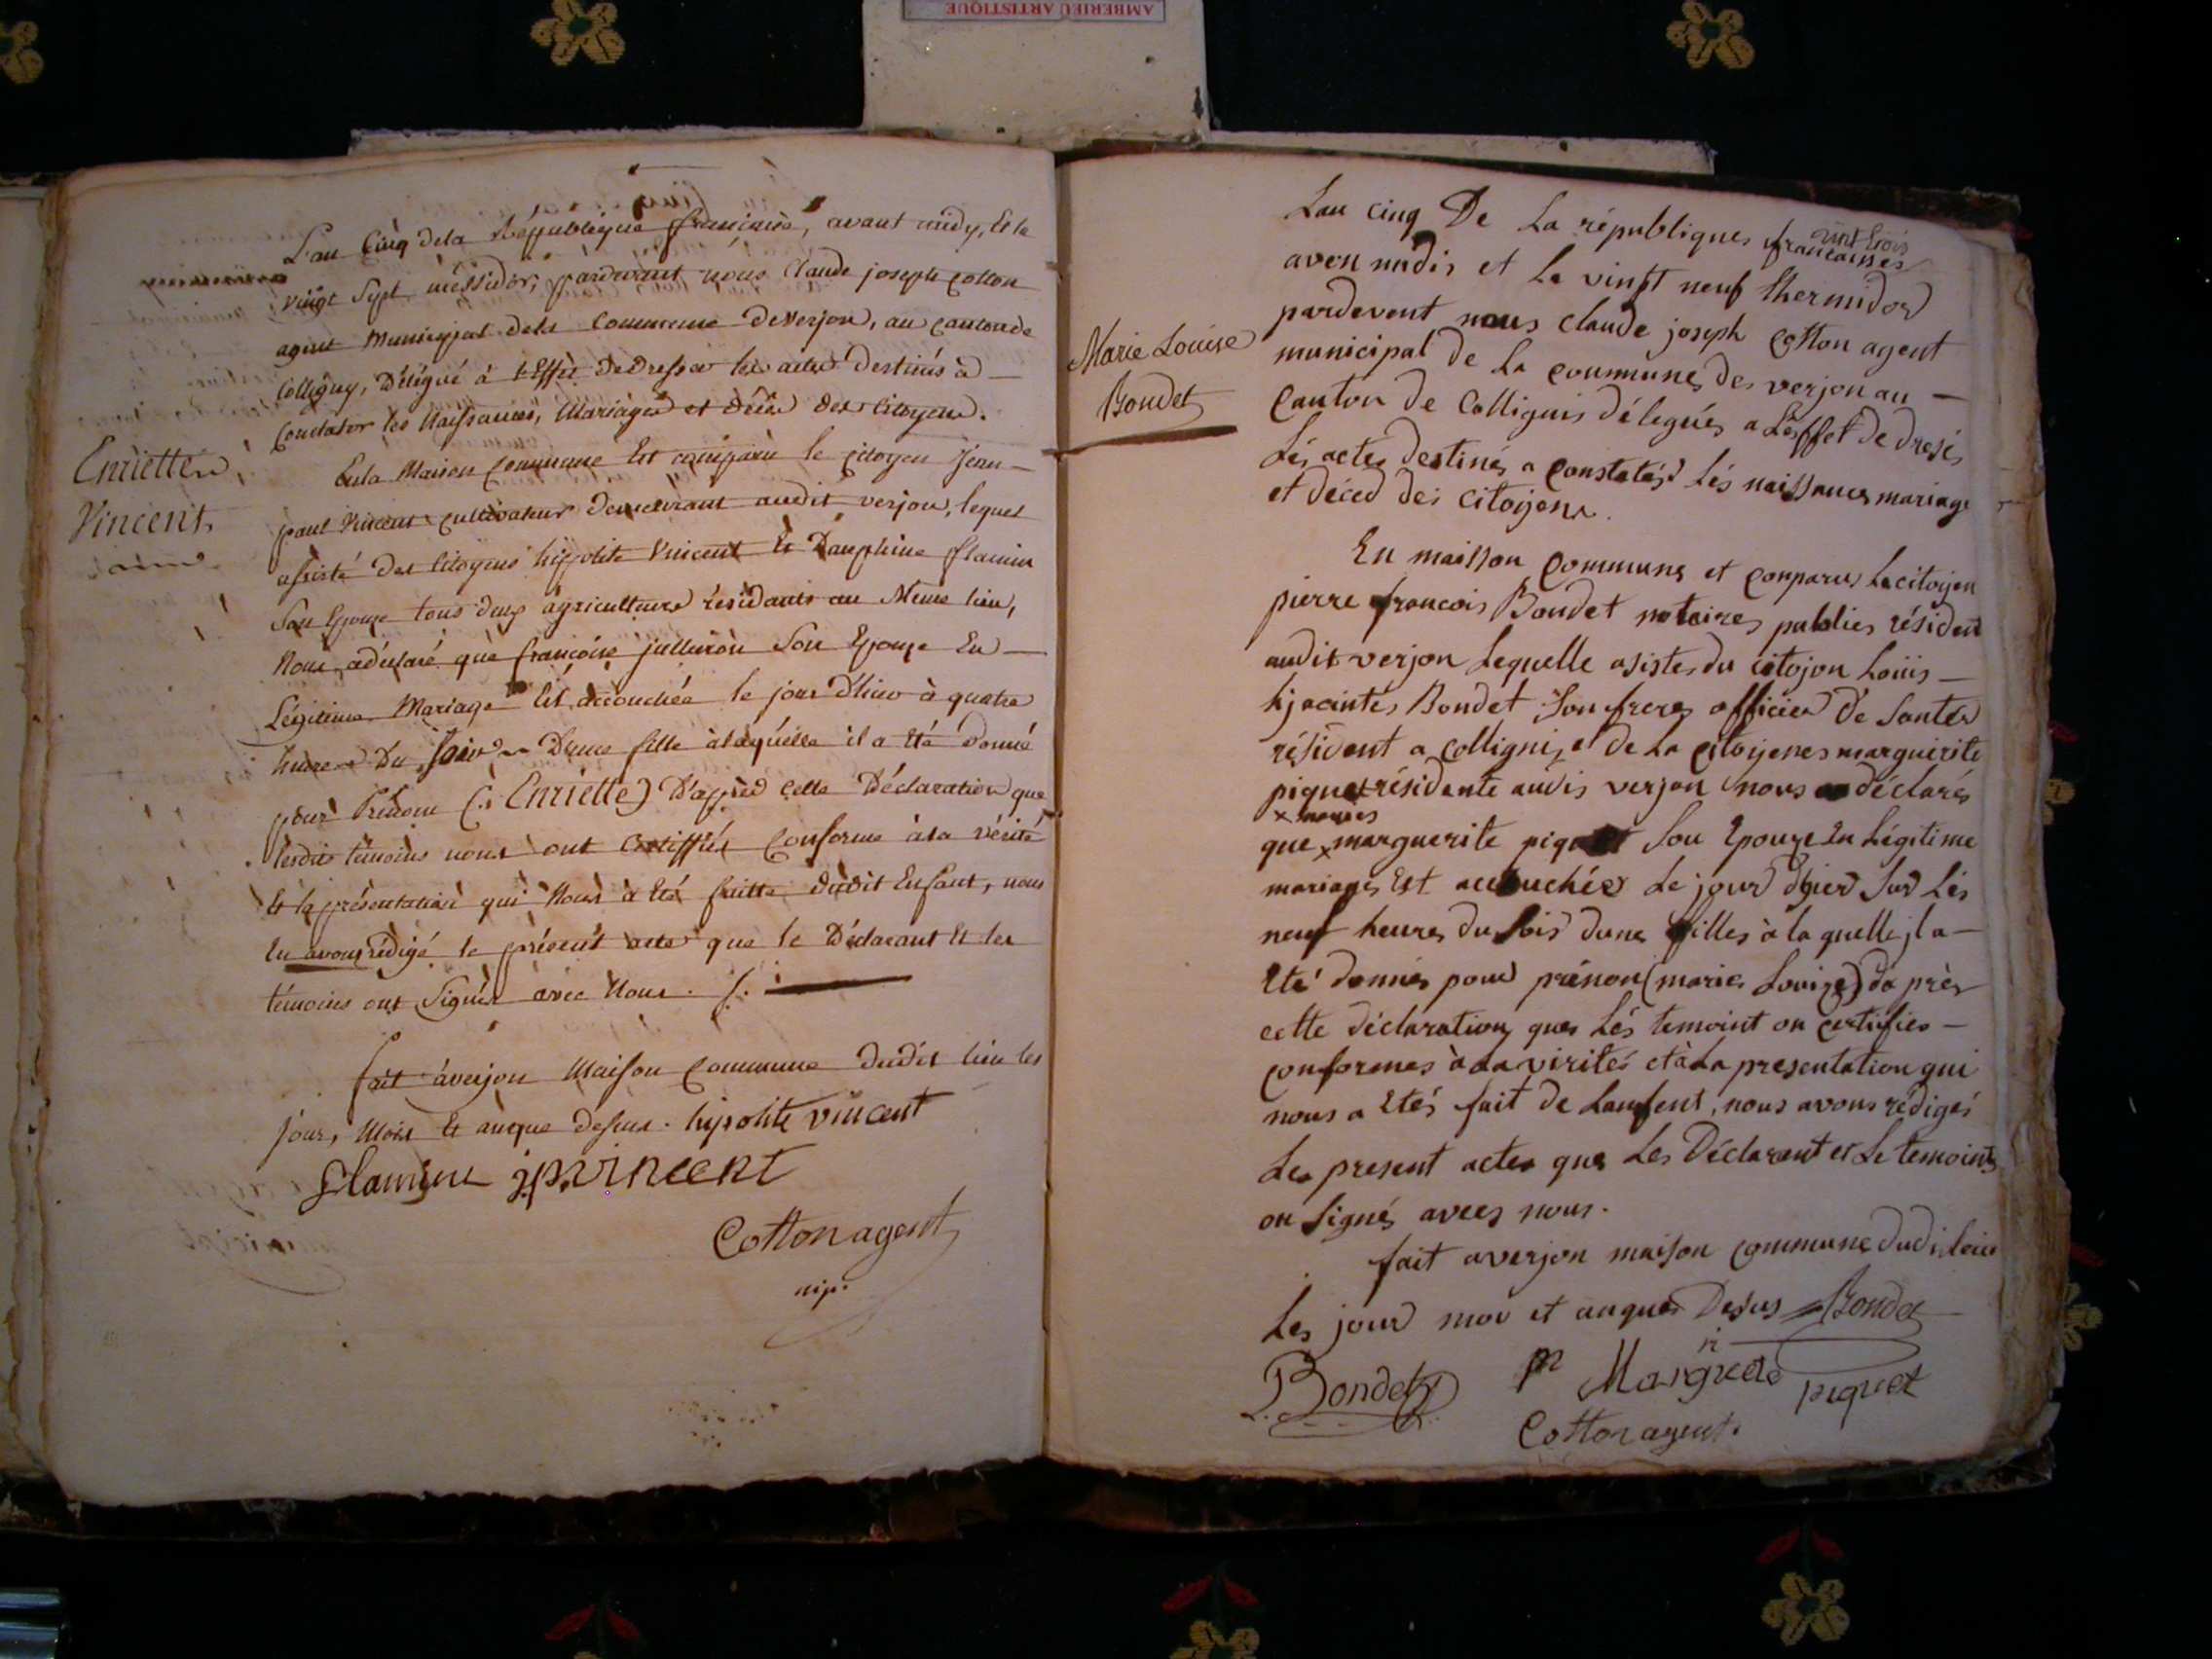 AMBERIEU ARTISTIQUE
L'an Cinq dela République française, avant midy, Et le
vingt Sept messidor, pardevant nous Claude joseph Cotton
agent Municipal dela Commune deVerjon, au Canton de
Colligny, Délégué à l'Effet deDresser les actes Destinés à
Constater les Naissances, Mariages et décès des Citoyens.
Enla Maison Commune Est comparu le citoyen Jean
paul Vincent cultivateur demeurant audit verjon, lequel
assisté des Citoyens hippolite Vincent Et Dauphine flamin
Son Epouse tous deux agriculteurs résidants au Même lieu,
Nous adéclaré què françoise Son Epouze En
Légitime Mariage Est accouchée le jour d'hier à quatre
heures Du soir Dune fille àlaquelle il a Eté donné
pour Prénom (Enriette) D'après cette Déclaration que
lesdits témoins nous ont Certiffiés Conforme àla vérité
Et la présentation qui Nous à Eté faitte dudit Enfant, nous
En avons rédigé le présent acte que le Déclarant Et les
témoins ont Signés avec Nous.
fait àverjon Maison Commune dudit lieu les
jour, Mois Et anque dessus. hipolite vincent
flamine jpvincent
Cotton agent
Enriette
Vincent
Marie Louise
Bondet
Lan cinq De La républiques francaisses
vint trois
aven midis et le vingt neuf thermidor
pardevent nous claude joseph Cotton agent
municipal de La communes des verjon au
Canton de Collignis délegués a Leffet de dresés
Lés actes destinés a constatés Lés naissances mariage
et déced dés citoyens.
En maisson communes et comparus Le citoyen
pierre francois Bondet notaires publies résident
audit verjon Lequelle asistes du citojon Louis
hjacintes Bondet Son freres officier de Santés
résident a Colligni, et de La Citoyenes marguirite
piquet résidente audis verjon nous a déclarés
que x marguerite piquet Son Epouze En Légitime
mariages Est accouchée Le jour dhier Sur Lés
neuf heures du Soir dunes filles à la quelle jl a
Eté donnés pour prénon (maries Louize) da près
cette déclaration ques Lés temoint on certifies
conformes à La virités et à La presentation qui
nous a Etés fait de Lanfent, nous avons rédigés
Les present actes ques Les Déclarent et Le temoints
on Signés avecs nous.
fait a verjon maison commune dudi Leiu
Les jour moi et anques Desus Bondet
Bondet Margrete piquet
Cotton agent.